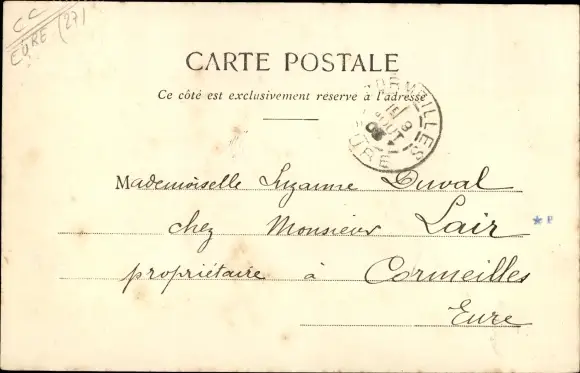 CC
EURE (27)
CARTE POSTALE
Ce côté est exclusivement réservé à l'adresse
CORMEILLES
15
AOUT
EURE
Mademoiselle Suzanne Duval
chez Monsieur Lair
propriétaire à Cormeilles
Eure